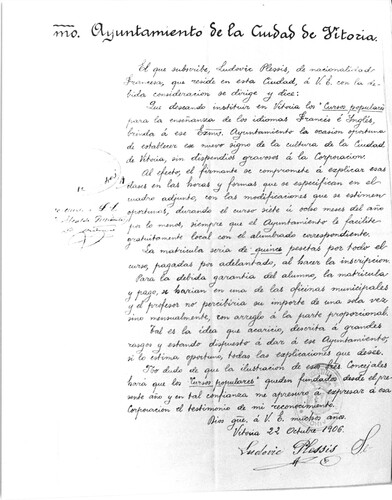 Exmo. Ayuntamiento de la Ciudad de Vitoria.
El que subscribe, Ludovic Plessis, de nacionalidad
Francesa, que reside en esta Ciudad, á V. E. con la de-
bida consideración se dirige y dice:
Que deseando instituir en Vitoria los "Cursos populares"
para la enseñanza de los idiomas Francés é Inglés,
brinda á ese Excmo. Ayuntamiento la ocasion oportuna
de establecer ese nuevo signo de la cultura de la Ciudad
de Vitoria, sin dispendios gravosos á la Corporacion.
Al efecto, el firmante se compromete á explicar esas
clases en las horas y formas que se especifican en el
cuadro adjunto, con las modificaciones que se estimen
oportunas, durando el curso siete ú ocho meses del año
por lo menos, siempre que el Ayuntamiento le facilite
gratuitamente local con el alumbrado correspondiente.
La matrícula seria de quince pesetas por todo el
curso, pagadas por adelantado, al hacer la inscripcion.
Para la debida garantia del alumno, la matrícula
y pago, se harian en una de las oficinas municipales
y el profesor no percibiria su importe de una sola vez
sino mensualmente, con arreglo á la parte proporcional.
Tal es la idea que acaricio, descrita á grandes
rasgos y estando dispuesto á dar á ese Ayuntamiento,
si lo estima oportuno, todas las explicaciones que desee.
No dudo de que la ilustracion de Concejales
hará que los "Cursos populares" queden fundados desde el pre-
sente año y en tal confianza me apresuro á expresar á esa
Corporacion el testimonio de mi reconocimiento.
Dios gue. á V. E. muchos años.
Vitoria 22 Octubre 1906.
Ludovic Plessis